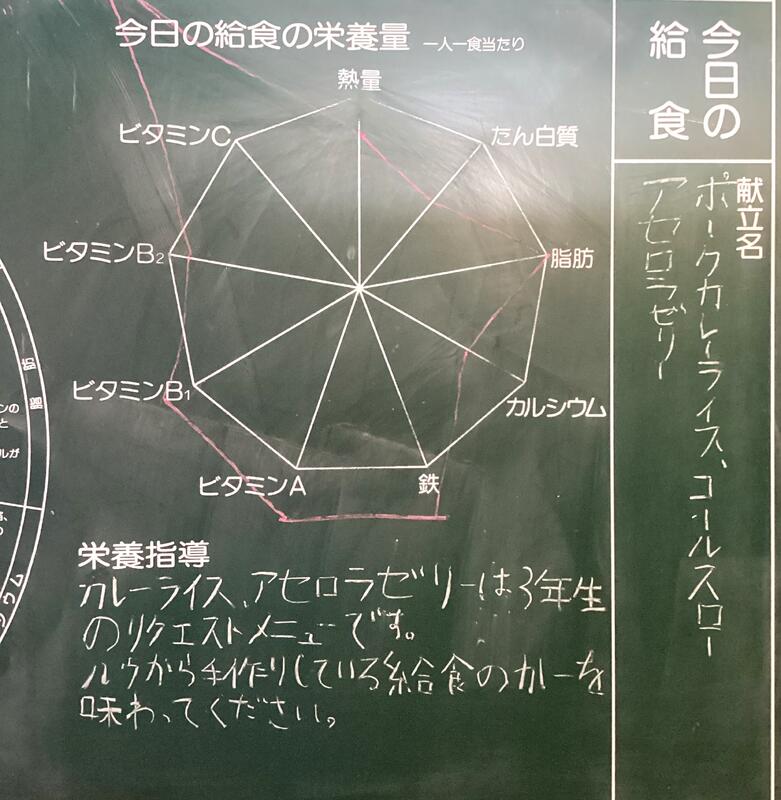 今日の給食の栄養量 一人一食当たり
熱量
たん白質
脂肪
カルシウム
鉄
ビタミンA
ビタミンB1
ビタミンB2
ビタミンC
栄養指導
カレーライス、アセロラゼリーは3年生
のリクエストメニューです。
ルウから手作りしている給食のカーを
味わってください。
今日の
給食
献立名
ポークカレーライス、コールスロー
アセロラゼリー
肪